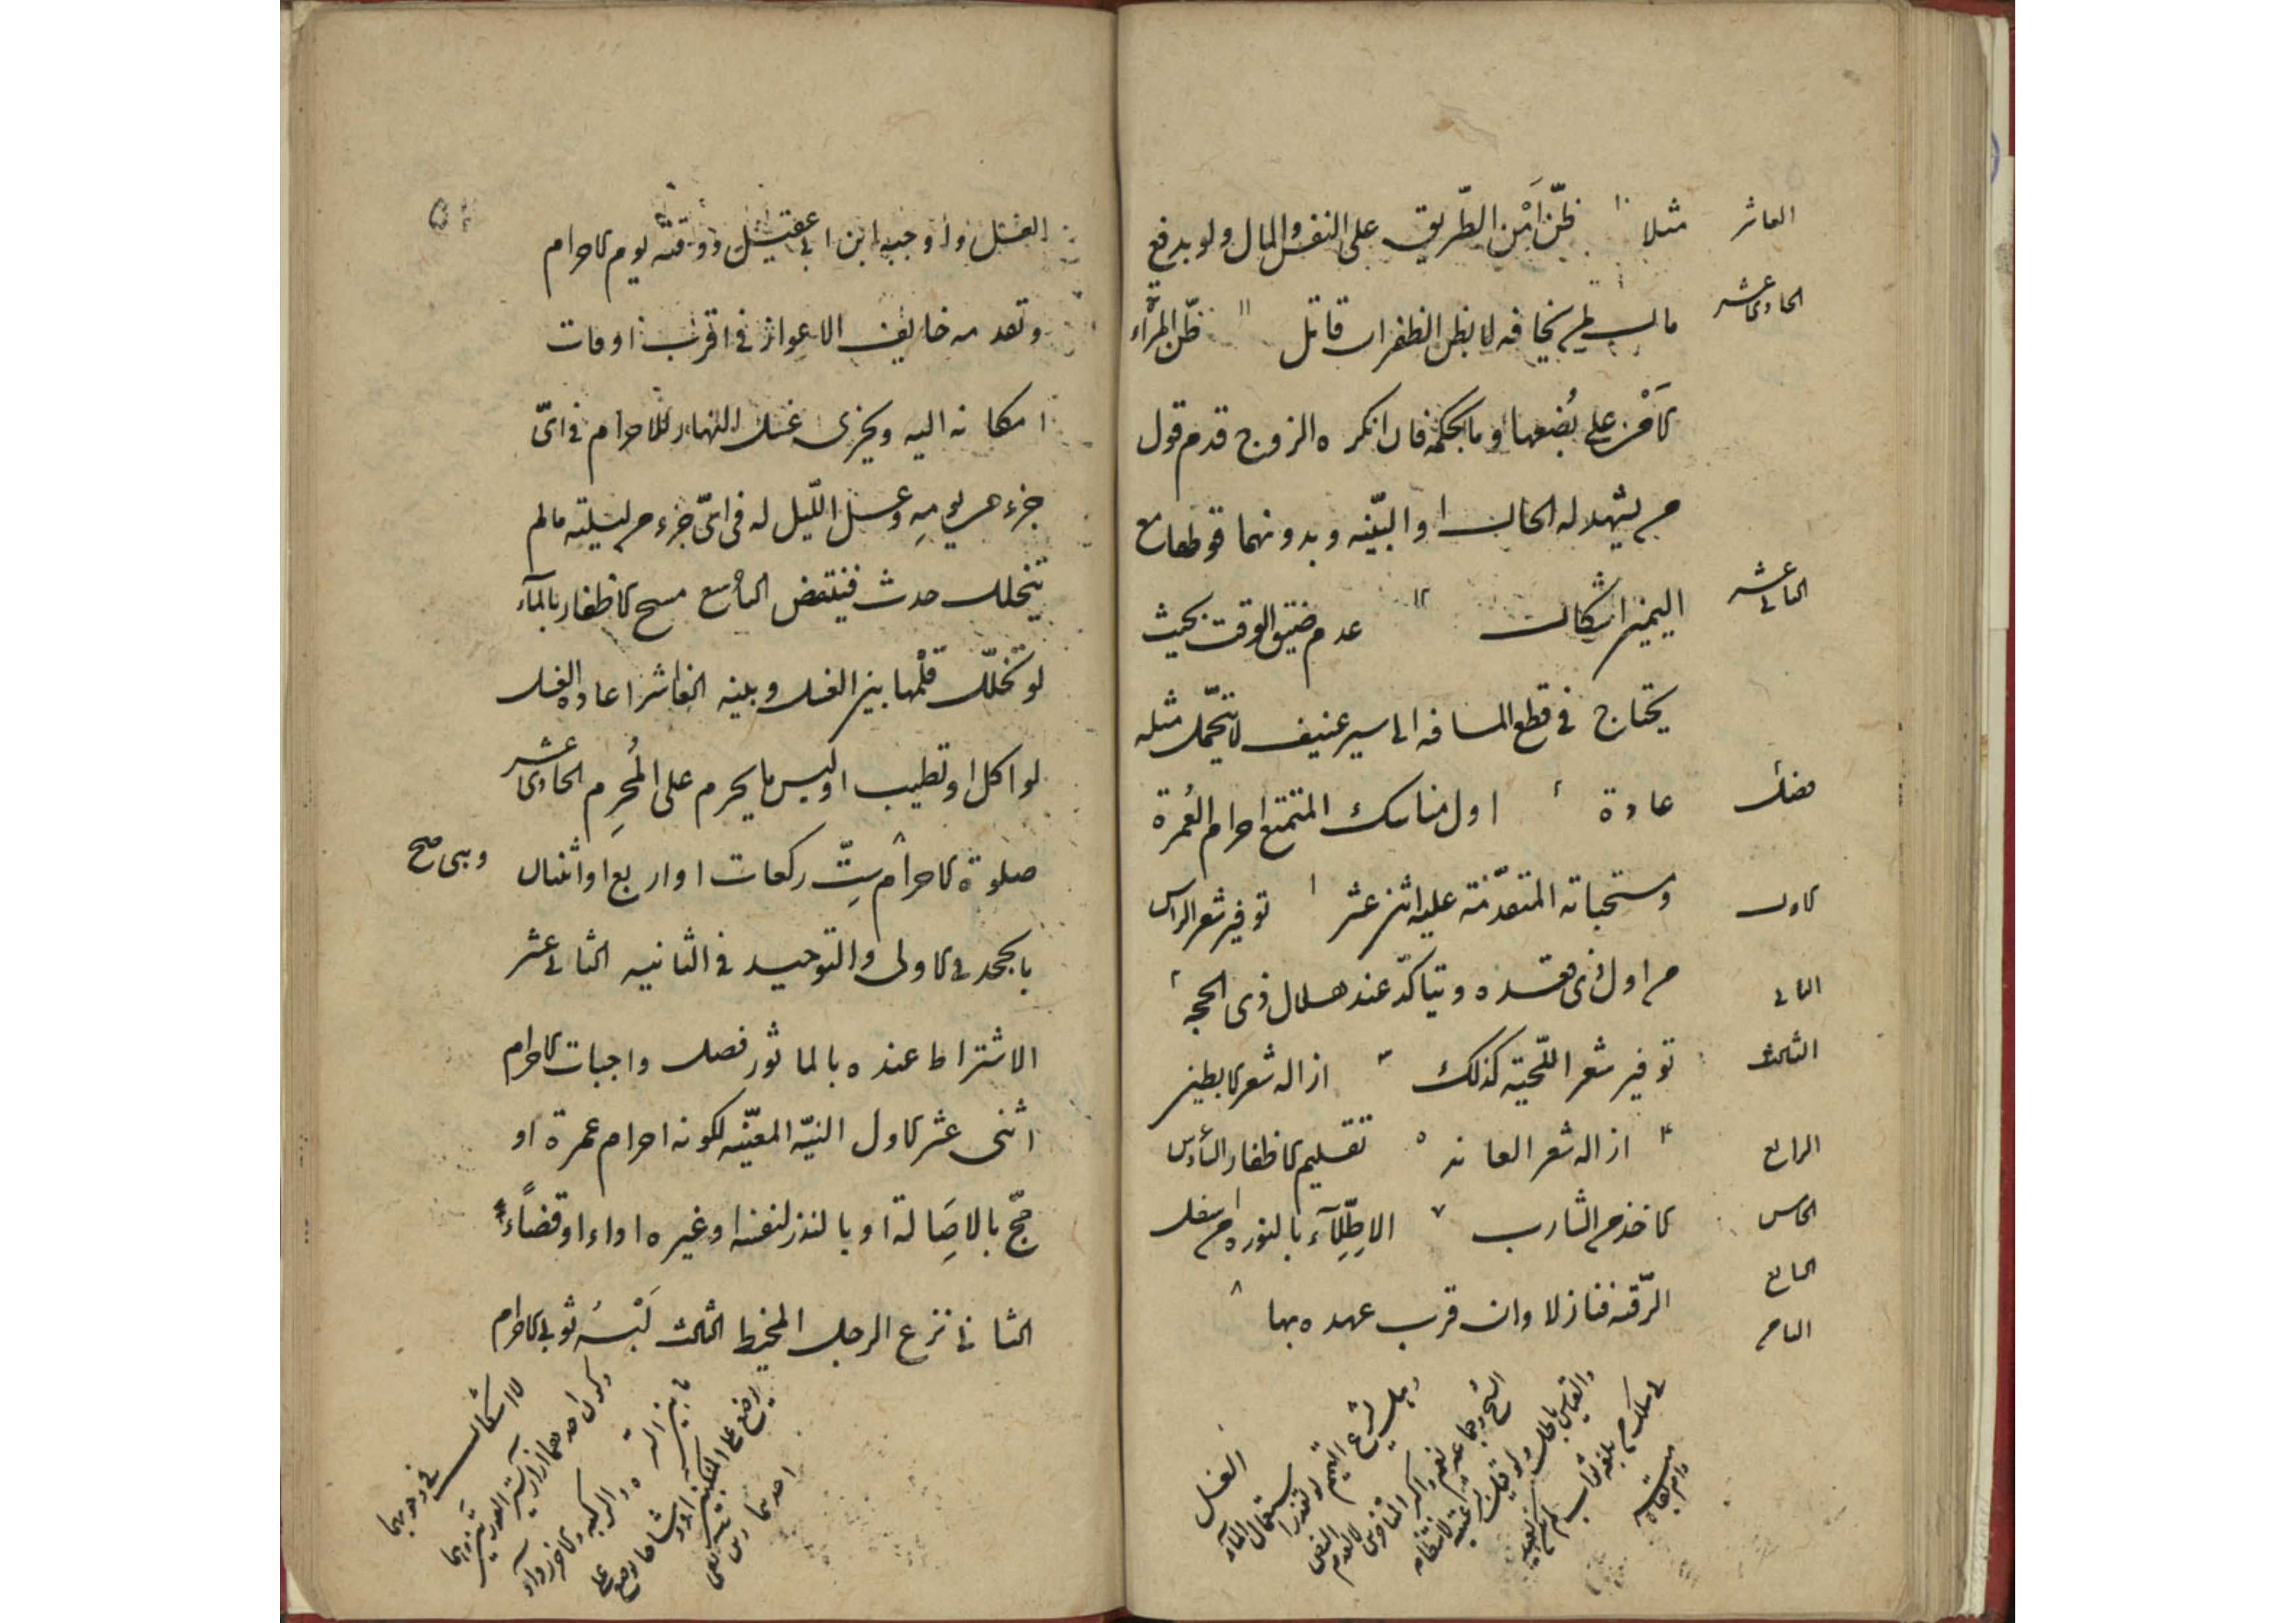 العاشر
مثلا ١٠ ظنّ أمن الطّريق على النفس والمال ولو بدفع
الحادى عشر
مال لم يجحف به لا بظن الظفر ان قاتل ١١ ظنّ المرأة
الامن على بُضعها او ما بحكمه فان انكره الزوج قدم قول
من يشهد له الحال او البيّنه وبدونهما قوطعا مع
الثانى عشر
اليمين اشكال ١٢ عدم ضيق الوقت بحيث
يحتاج فى قطع المسافه الى سير عنيف لا يتحمّل مثله
فصل
عادة اول مناسك المتمتع احرام العُمرة
الاول
ومستحباته المتقدّمة عليه اثنى عشر ١ توفير شعر الرأس
الثانى
من اول ذى قعده ويتاكّد عند هلال ذى الحجه ٢
الثالث
توفير شعر اللّحيته كذلك ٣ ازاله شعر الابطين
الرابع
٤ ازاله شعر العانه ٥ تقليم الاظفار السادس
الخامس
الاخذ من الشارب ٧ الاطّلاء بالنوره من اسفل
السابع
الرّقبه فنازلا وان قرب عهده بها ٨
الثامن
الغسل
وهل يشرع التيمم لو تعذر استعمال المآء
الغسل واوجبه ابن ابى عقيل ووقته يوم الاحرام
وتقدمه خايف الاعواز فى اقرب اوقات
امكانه اليه ويجزى غسل النهار للاحرام فى اىّ
جزء من يومِه وغسل اللّيل له فى اىّ جزء من ليلته مالم
يتخلل حدث فينتقض التاسع مسح الاظفار بالمآء
لو تخلّل قلْمها بين الغسل وبينه العاشر اعاده الغسل
لو اكل او تطيب او لبس ما يحرم على المُحرِم الحادى عشر
صلوة الاحرام سِتّ ركعات او اربع او اثنان وهى صح
بالجحد فى الاولى والتوحيد فى الثانيه الثانى عشر
الاشتراط عنده بالماثور فصل واجبات الاحرام
اثنى عشر الاول النيّه المعيّنه لكونه احرام عمرة او
حجّ بالاصَالة او بالنذر لنفسه او غيره اداء او قضاءً
الثانى نزع الرجل المخيط الثالث لَبْسُه ثوبى الاحرام
لا اشكال فى وجوبهما
وكون احدهما ازار يستر العورتين
ما بين السره والركبه والاخر رداء